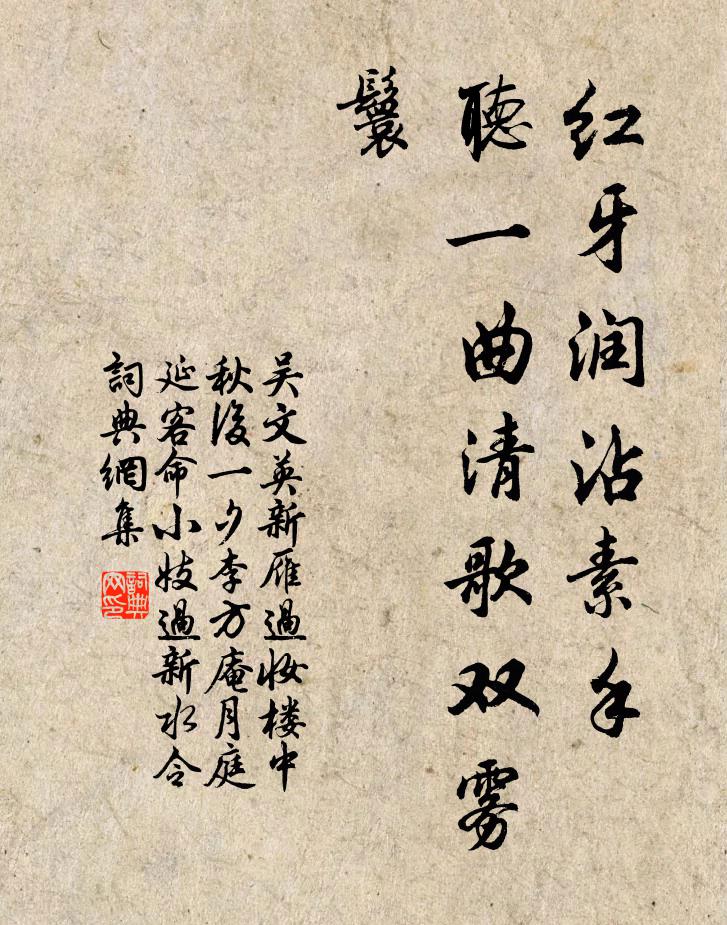 红牙润沾素手
聽一曲清歌双雾
鬟
吴文英新雁過妝楼中
秋後一夕李方庵月庭
延客命小妓過新水令
詞典網集
詞典
网印